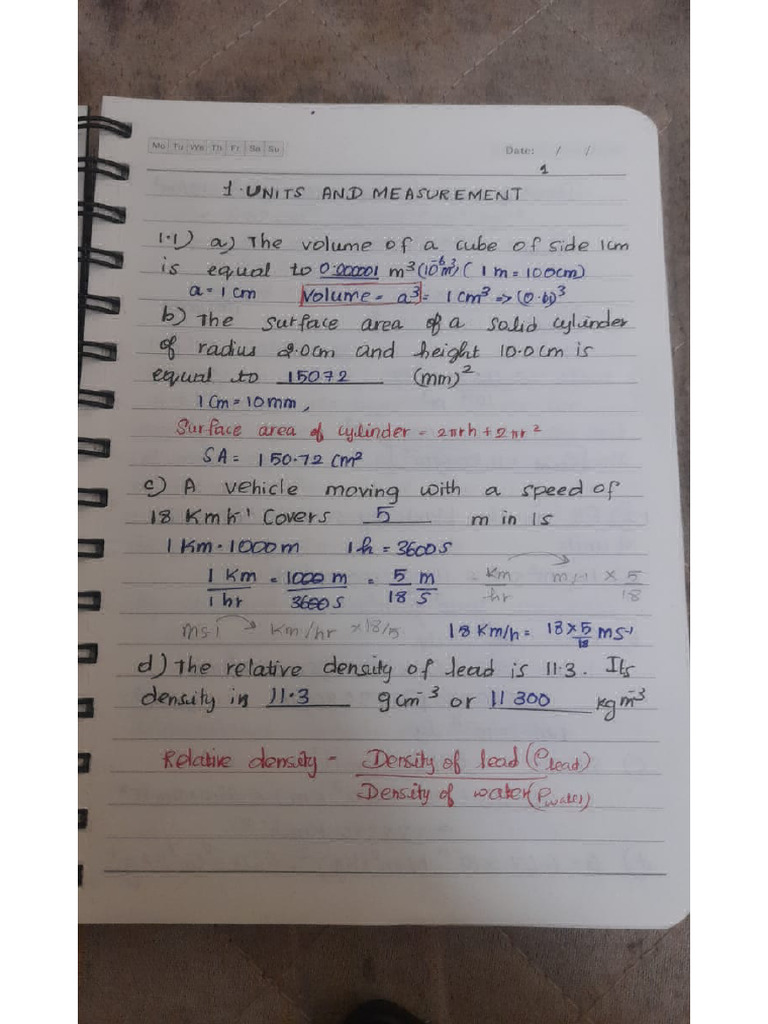 Mo Tu We Th Fr Sa Su Date: / /
1
1. UNITS AND MEASUREMENT
1.1) a) The volume of a cube of side 1cm
is equal to 0.000001 m³ (10⁻⁶m³) (1m = 100cm)
a = 1 cm Volume = a³ = 1 cm³ =>
b) The surface area of a solid cylinder
of radius 2.0cm and height 10.0cm is
equal to 15072 (mm)²
1cm = 10mm,
Surface area of cylinder = 2πrh + 2πr²
SA = 150.72 cm²
c) A vehicle moving with a speed of
18 Kmh⁻¹ Covers 5 m in 1s
1 Km = 1000m 1h = 3600s
1 Km / 1 hr = 1000 m / 3600 s = 5/18 m/s Km/hr → ms-1 × 5/18
ms-1 → Km/hr × 18/5 18 Km/h = 18 × 5/18 ms⁻¹
d) The relative density of lead is 11.3. Its
density in 11.3 g cm⁻³ or 11 300 kg m⁻³
Relative density = Density of lead (ρlead)
Density of water (ρwater)